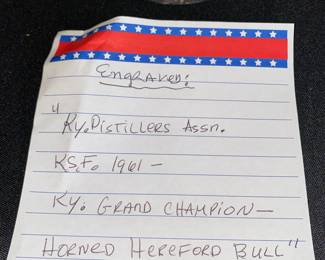 Engraved:
"Ky. Distillers Assn.
K.S.F. 1961 -
Ky. Grand Champion -
Horned Hereford Bull"